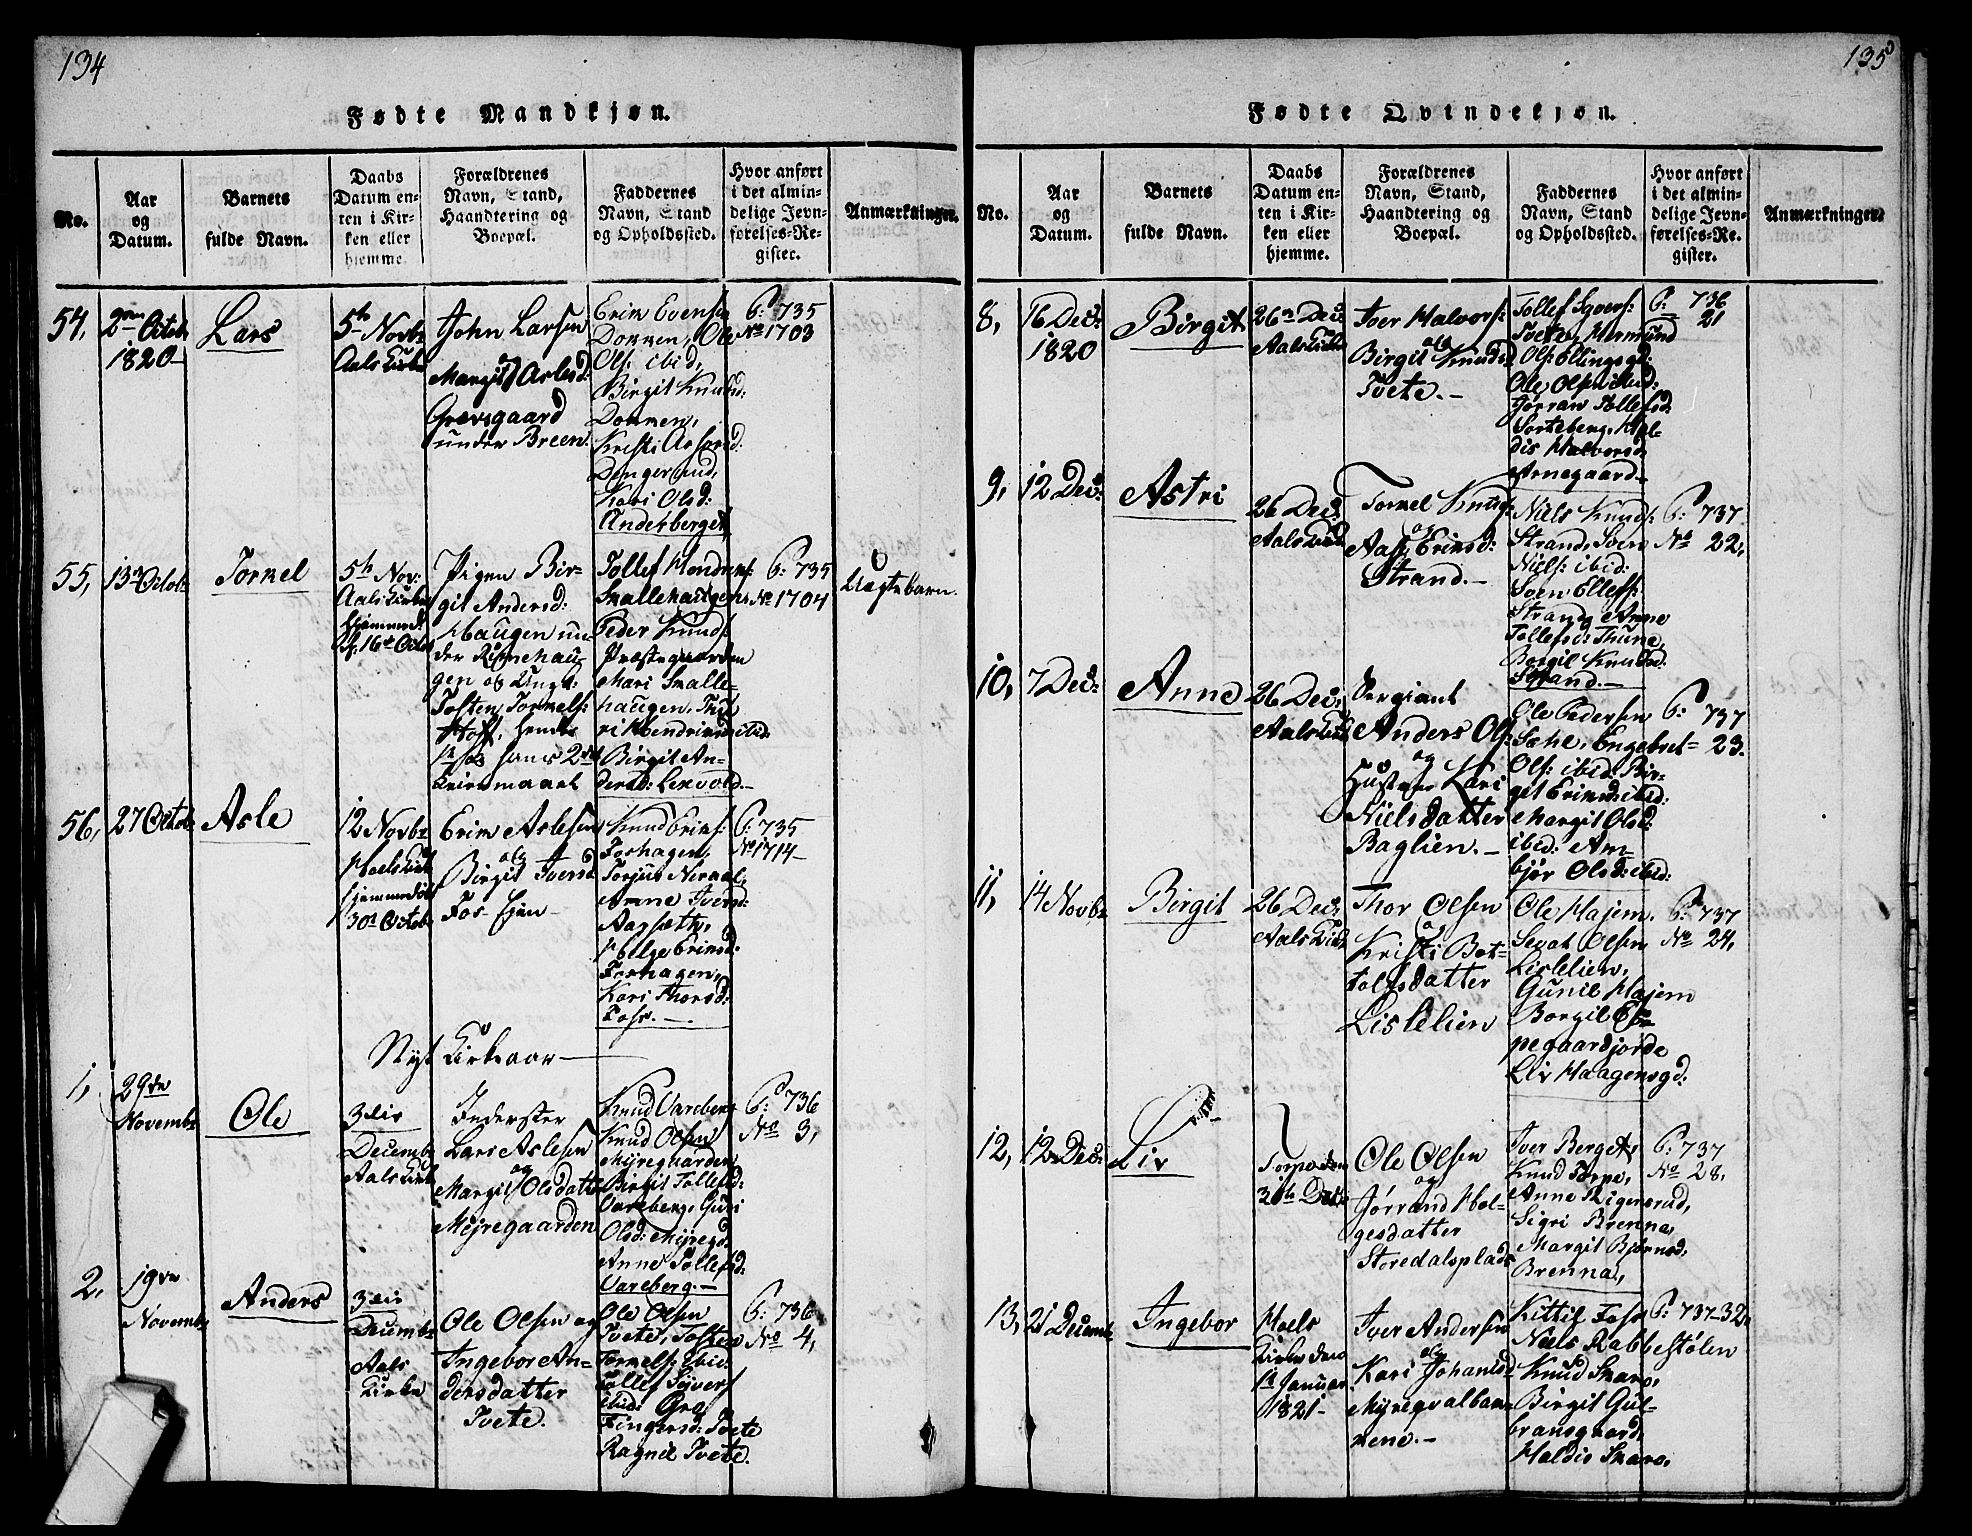 134
Fødte Mandkjøn.
No.
Aar
og
Datum.
Barnets
fulde Navn.
Daabs
Datum en-
ten i Kir-
ken eller
hjemme.
Forældrenes
Navn, Stand,
Haandtering og
Boepæl.
Faddernes
Navn, Stand
og Opholdssted.
Hvor anført
i det almin-
delige Jevn-
førelses-Re-
gister.
Anmærkninger.
54,
2den Octob
1820
Lars
5th Novbr
Aals Kirke
John Larsen
og
Margit Aslesd:
Grevsgaard
under Breen.
Erik Evens:
Dokken, Ole
Ols: ibid,
Birgit Knudsd:
Dokken,
Kristi Asforsd:
Dengerud,
Kari Olsd:
Anderberget
P: 735
No 1703
55,
13de Octob
Torkel
5th Nov:
Aals Kirke
hjemmed:
16de Octob
Pigen Bir-
git Andersd:
Haugen un-
der Rimehau-
gen og Ungk:
Tosten Torkels:
Hoff, hendes
1ste og hans 2det
Leiermaal
Tollef Hendriks:
Skallehaugen
Peder Knuds:
Præstegaarden
Mari Skalle-
haugen,
ri Hendriksd: ibid:
Birgit An-
dersd: Lexvold.
P: 735
No 1704
Uægte barn.
56,
27 Octob
Asle
12 Novbr
Hoels Kirke
hjemmedøbt
30te Octob
Erik Aslesen
og
Birgit Iversd
Fos Ejen
Knud Eriks:
Foshagen,
Torjus Noraal,
Anne Iversd:
Aagsæth,
Helge Eriksd:
Foshagen,
Kari Thorsd:
Foss.
P: 735
No 1714
Nyt Kirkeaar
1,
29de
Novembr
Ole
3die
Decembr
Aals Kirke
Inderster
Lars Aslesen
og
Margit Olsdatter
Mejregaarden
Knud Vareberg
Knud Olsen
Mejregaarden
Birgit Tollefsd:
Vareberg, Guri
Olsd: Mejregd.
Anne Tollefsd:
Vareberg.
P: 736
No 3,
2,
19de
Novembr
Anders
3die
Decembr
Aals
Kirke
Ole Olsen og
Ingebor An-
dersdatter
Tvete.
Ole Olsen
Tvete, Tosten
Torkels: ibid:
Tollef Syvers:
ibid: Gro
Fingersd: Tvete
Ragnil Tvete.
P: 736
No 4,
135
Fødte Qvindekjøn.
No.
Aar
og
Datum.
Barnets
fulde Navn.
Daabs
Datum en-
ten i Kir-
ken eller
hjemme.
Forældrenes
Navn, Stand,
Haandtering og
Boepæl.
Faddernes
Navn, Stand
og Opholdssted.
Hvor anført
i det almin-
delige Jevn-
førelses-Re-
gister.
Anmærkninger.
8,
16 Dec:
1820
Birgit
26de Dec:
Aals Kirke
Iver Halvors:
og
Birgit Knudsd
Tvete.
Tollef Syvers:
Tvete, Hermund
Ols: Elingsgd:
Ole Olsen ibid:
Jørran Tollefsd:
Sorteberg, Hal-
dis Halvorsd,
Arnegaard
P: 736
21
9,
12 Dec:
Astri
26 Dec:
Aals Kirke
Torkel Knuds:
og
Aase Eriksd:
Strand.
Niels Knuds:
Strand, Sven
Niels: ibid:
Sven Ellefs:
Strand, Anne
Tollefsd: Thune,
Borgil Knudsd:
Strand.
P: 737
No 22,
10,
7 Dec:
Anne
26 Dec:
Aals Kirke
Sergiant
Anders Ols:
og
Hustrue Kari
Nielsdatter
Baglien.
Ole Pedersen
Sæhe, Engebret
Ols: ibid: Bir-
git Eriksd: ibid:
Margit Olsd:
ibid: Am-
bjør Olsd: ibid:
P: 737
23.
11,
14 Novbr
Birgit
26 Dec:
Aals Kirke
Thor Olsen
og
Kristi Bot-
tolfsdatter
Lislelien
Ole Hajem,
Sevat Olsen
Lislelien,
Gunil Hajem
Borgil Op-
pegaardjorde
Liv Haagensgd:
P: 737
No 24,
12,
12 Dec:
Liv
Torpe den
Ole Olsen
og
Jørrand Hel-
gesdatter
Storedalsplads
Iver Berget,
Knud Torpe,
Anne Rigersrud,
Sigri Brenna,
Margit Bjørnsd,
Brenna,
P: 737
No 28,
13,
21 Decemb
Ingebor
Hoels
Kirke den
1ste Januar
1821
Iver Andersen
og
Kari Johansd
Mejreqvalbak-
kene.
Kittil Foss
Niels Rabbestølen
Knud Skaro,
Birgit Gul-
bransgaard,
Haldis Skaro,
P: 737-32,